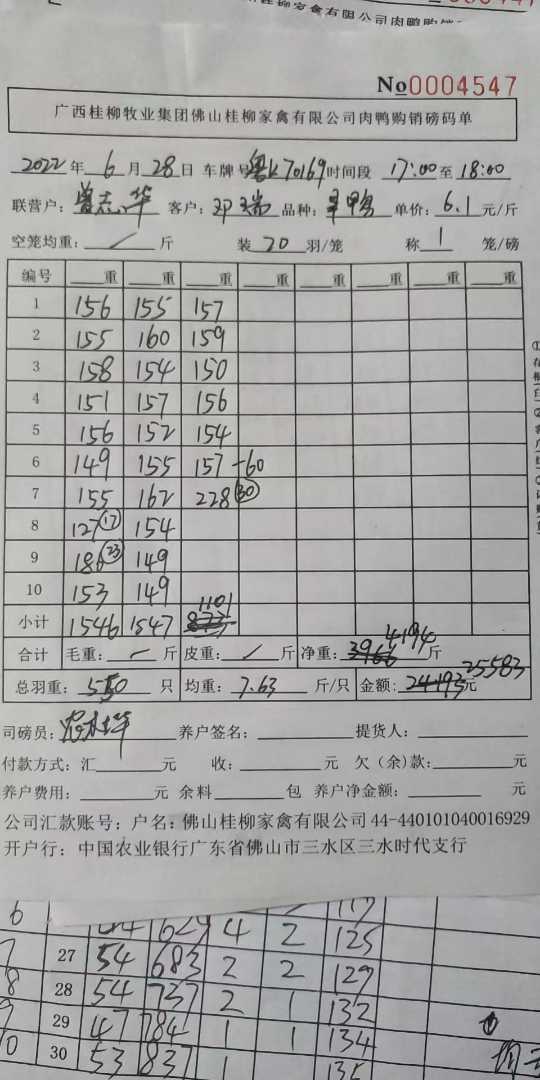 家禽有限公司肉鸭购销
No0004547
广西桂柳牧业集团佛山桂柳家禽有限公司肉鸭购销磅码单
2022年 6月 28日 车牌号粤 70169 时间段 17:00至 18:00
联营户：曾志华 客户：邓瑞 品种： 鸭 单价：6.1元/斤
空笼均重：/斤 装 20 羽/笼 称 1 笼/磅
编号 重 重 重 重 重 重 重 重
1 156 155 157
2 155 160 159
3 158 154 150
4 151 157 156
5 156 152 154
6 149 155 157-60
7 155 162 228 (30)
8 127(17) 154
9 186(23) 149
10 153 149
小计 1546 1547 873 1101
合计 毛重：/斤 皮重：/斤 净重：3966 4194斤
总羽重：550只 均重：7.63斤/只 金额：24193 25583元
司磅员： 华 养户签名： 提货人：
付款方式：汇 元 收： 元 欠（余）款： 元
养户费用： 元 余料 包 养户净金额： 元
公司汇款账号：户名：佛山桂柳家禽有限公司 44-440101040016929
开户行：中国农业银行广东省佛山市三水区三水时代支行
6 629 4 2 117
7 27 54 683 2 2 125
8 28 54 737 2 1 129
9 29 47 784 1 1 132
0 30 53 837 1 134
135